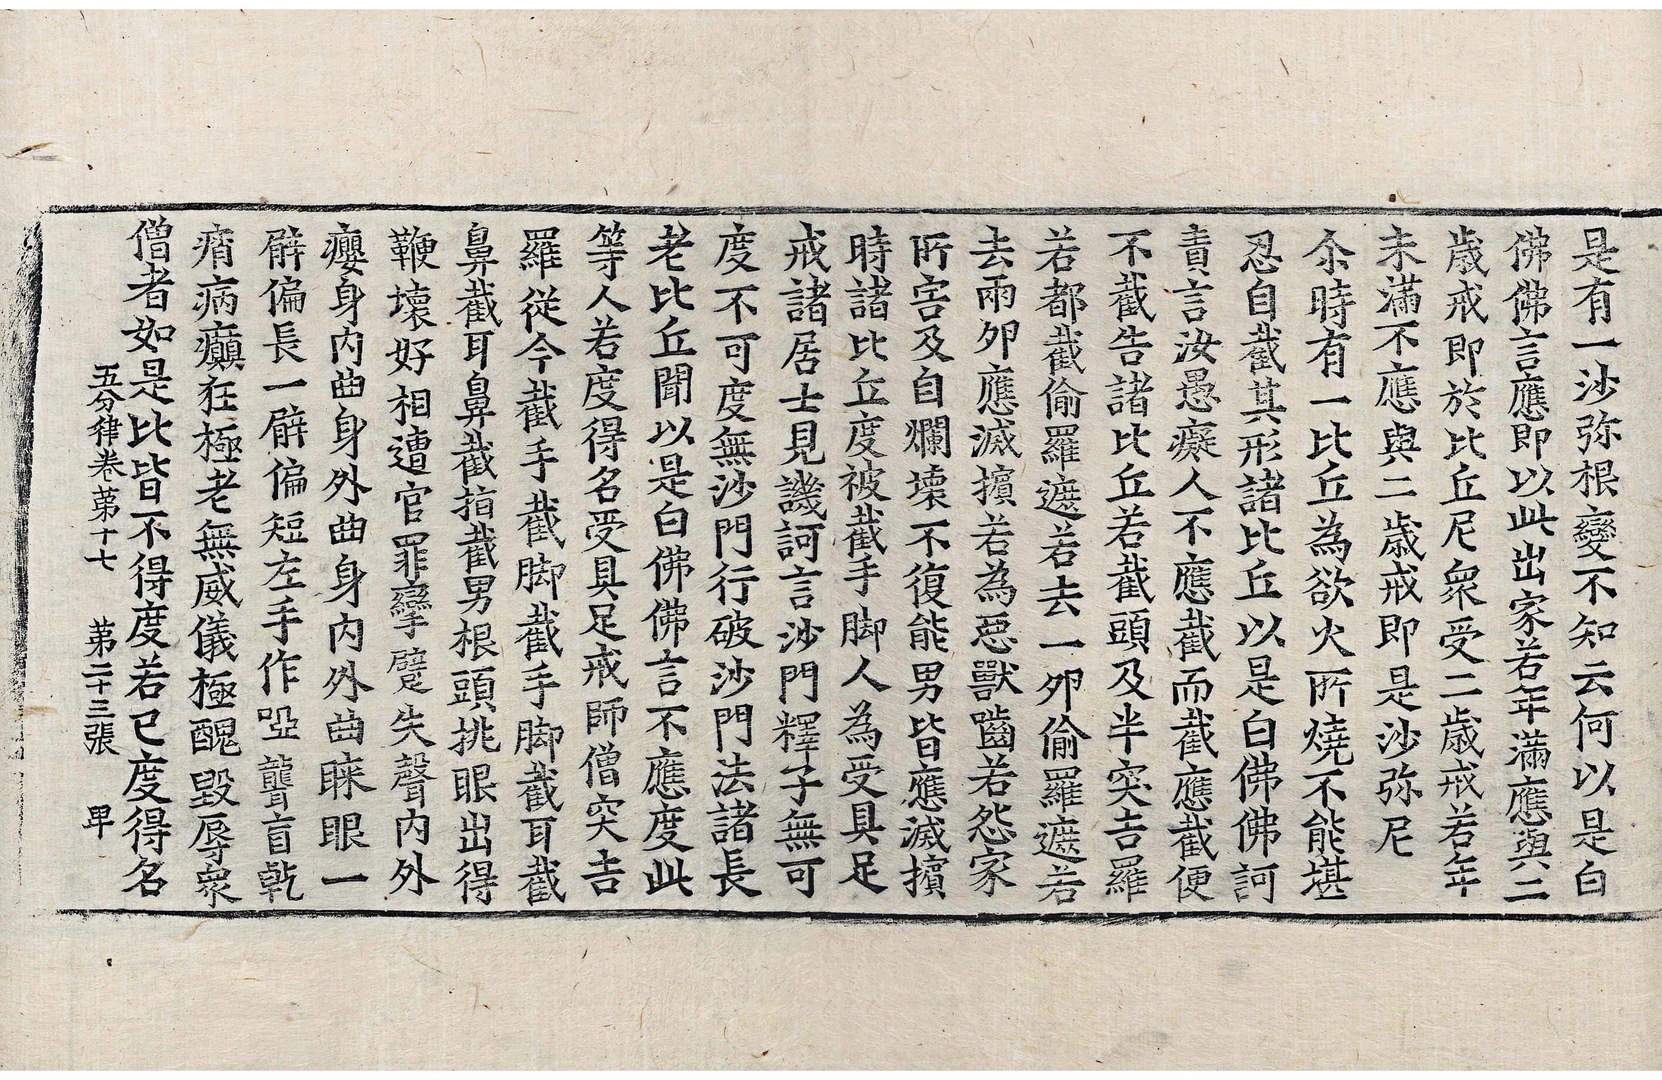 是有一沙弥根變不知云何以是白
佛佛言應即以此出家若年滿應與二
歲戒即於比丘尼衆受二歲戒若年
未滿不應與二歲戒即是沙弥尼
尒時有一比丘為欲火所燒不能堪
忍自截其形諸比丘以是白佛佛訶
責言汝愚癡人不應截而截應截便
不截告諸比丘若截頭及半突吉羅
若都截偷羅遮若去一夘偷羅遮若
去兩夘應滅擯若為惡獸嚙若怨家
所害及自爛壞不復能男皆應滅擯
時諸比丘度被截手脚人為受具足
戒諸居士見譏訶言沙門釋子無可
度不可度無沙門行破沙門法諸長
老比丘聞以是白佛佛言不應度此
等人若度得名受具足戒師僧突吉
羅從今截手截脚截手脚截耳截
鼻截耳鼻截指截男根頭挑眼出得
鞭壞好相遭官罪攣躄失聲內外
癭身內曲身外曲身內外曲睞眼一
臂偏長一臂偏短左手作啞聾盲乾
痟病癲狂極老無威儀極醜毀辱衆
僧者如是比皆不得度若已度得名
五分律卷第十七 第二十三張 甲